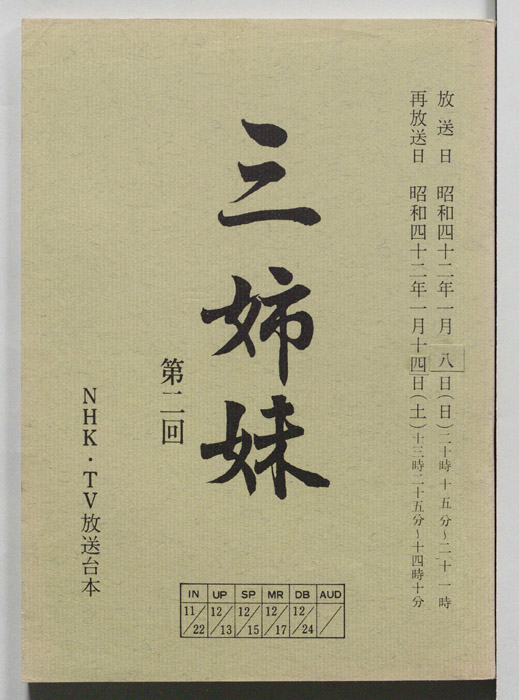 放送日　昭和四十二年一月八日(日)二十時十五分~二十一時
再放送日　昭和四十二年一月十四日(土)十三時二十五分~十四時十分
三姉妹
第二回
NHK・TV放送台本
IN UP SP MR DB AUD
11/22 12/13 12/15 12/17 12/24 /